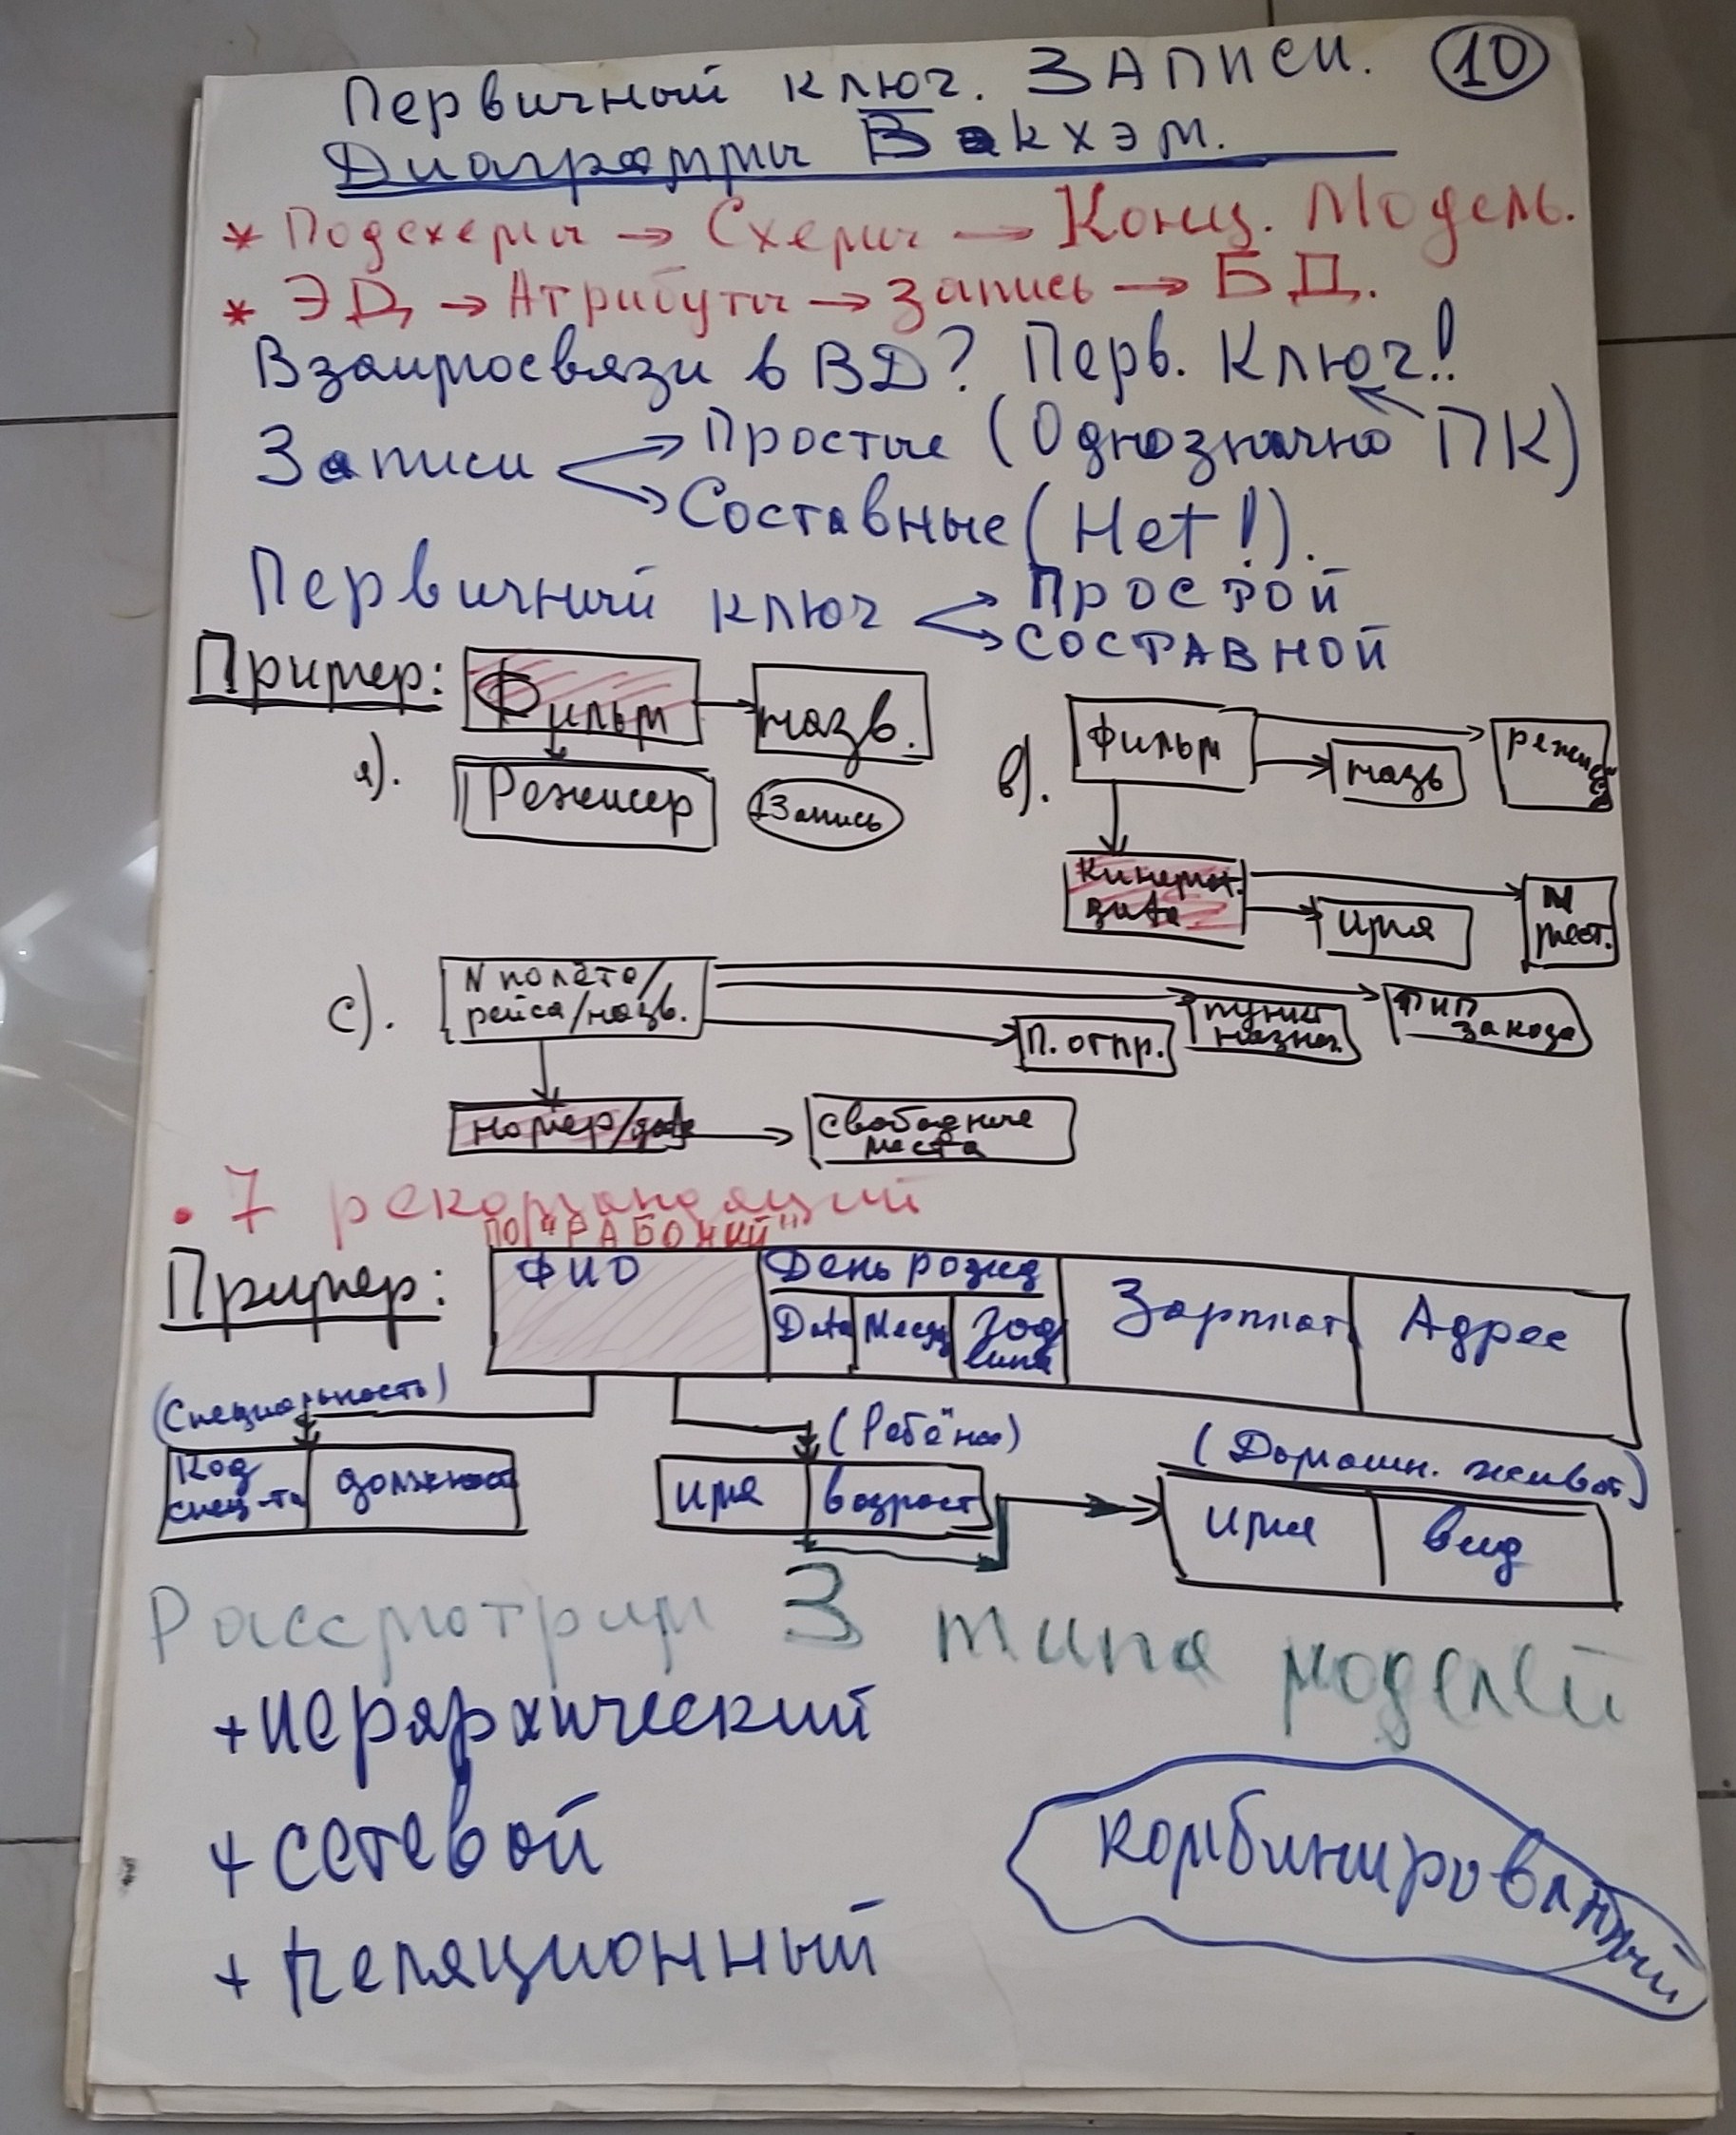 Первичный ключ. ЗАПИСИ. 10
Диаграммы Вакхэм.
* Подсхемы → Схемы → Конц. Модель.
* ЭД → Атрибуты → Запись → БД.
Взаимосвязи в ВД? Перв. Ключ!!
Записи Простые (Однозначно ПК)
Составные (Нет!).
Первичный ключ Простой
СОСТАВНОЙ
Пример:
а). Фильм назв.
Режисер 1 Запись
в). Фильм назв
Кинемат. дата имя N мест.
с). N полёта/
рейса/назв.
П. отпр. пункт назнач. тип заказа
номер/дата свободные
места
• 7 рекомендаций
ПО "РАБОЧИЙ"
Пример: ФИО День рожд Зарплат Адрес
Data Месяц Год
(Специальность) (Ребёнок) (Домашн. живот.)
Код должност имя возраст имя вид
спец-та
Рассмотрим 3 типа моделей
+ иерархический
+ сетевой
+ реляционный
комбинированный